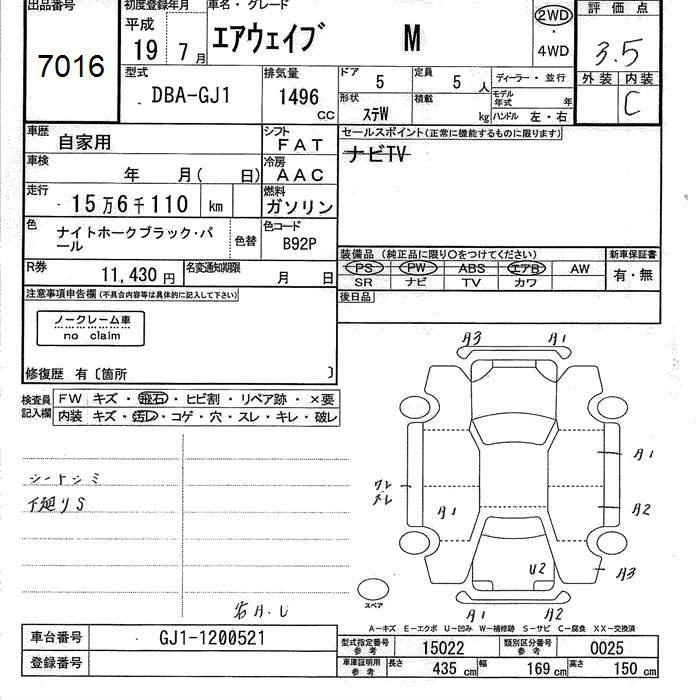 出品番号
7016
初度登録年月
平成
19年 7月
車名・グレード
エアウェイブ M
2WD
・
4WD
評価点
3.5
外装 内装
C
型式
DBA-GJ1
排気量
1496 cc
ドア 5
定員 5人
形状 ステW
積載 kg
ディーラー・並行
モデル年式 年
ハンドル 左・右
車歴 自家用
シフト FAT
車検 年 月( 日)
冷房 AAC
走行 15万6千110 km
燃料 ガソリン
色 ナイトホークブラック・パール
色替
色コード B92P
R券 11,430円
名変通知期限 月 日
セールスポイント(正常に機能するものに限ります)
ナビTV
装備品(純正品に限り○をつけてください)
PS PW ABS エアB AW
SR ナビ TV カワ
新車保証書
有・無
後日品
注意事項申告欄(不具合内容等は具体的に記入して下さい)
ノークレーム車
no claim
修復歴 有〔箇所 〕
検査員記入欄
FW キズ・飛石・ヒビ割・リペア跡・×要
内装 キズ・汚レ・コゲ・穴・スレ・キレ・破レ
シートシミ
下廻りS
A3 A1
A1
A2
A1
A3
U2
A1 A2
スペア
A-キズ E-エクボ U-凹み W-補修跡 S-サビ C-腐食 XX-交換済
車台番号 GJ1-1200521
登録番号
型式指定番号参考 15022
類別区分番号参考 0025
車庫証明用参考 長さ 435 cm 幅 169 cm 高さ 150 cm